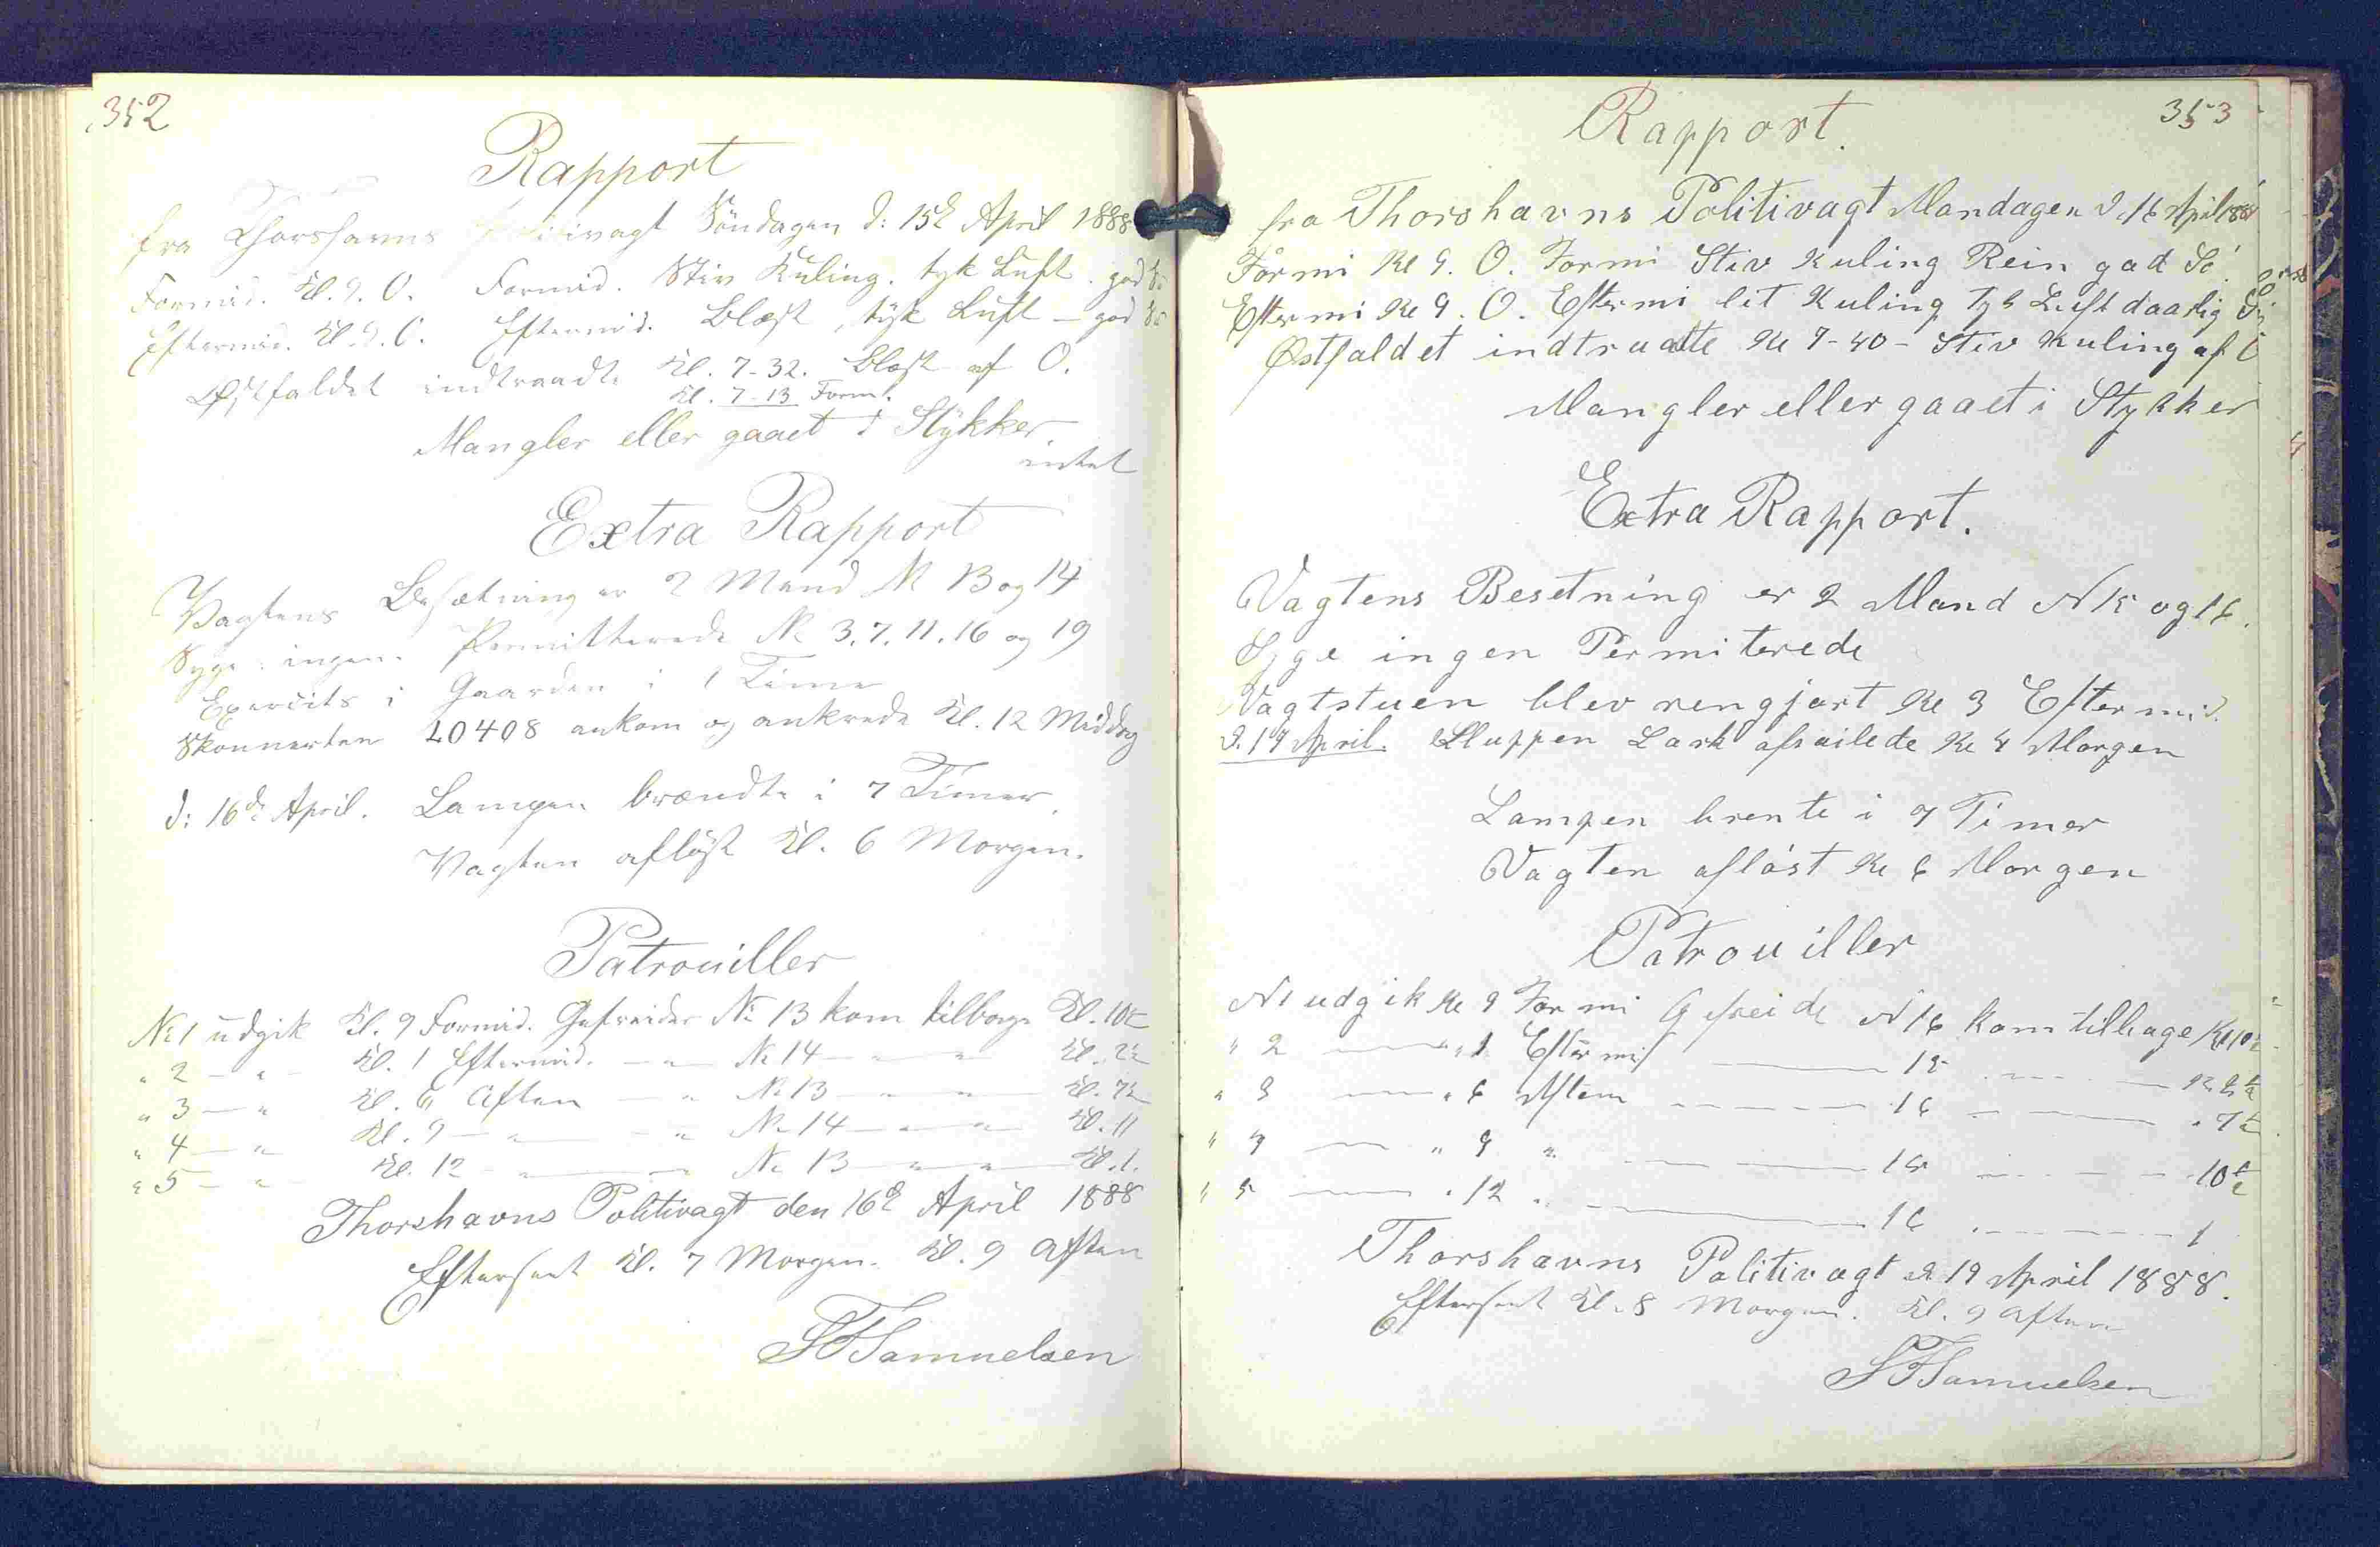 352
Rapport
fra Thorshavns Politivagt Söndagen d: 15d April 1888
Formid. Kl. 9. O. Formid. Stiv Kuling. tyk Luft. god
Eftermid. Kl. 9. O. Eftermid. Blæst, tyk Luft - god
Østfaldet indtraadte Kl. 7-32. Blæst af O.
Kl. 7-13 Form.
Mangler eller gaaet i Stykker
intet
Extra Rapport
Vagtens Besætning er 2 Mand No 13 og 14
Syge: ingen. Permitterede No 3. 7. 11. 16 og 19
Exercits i Gaarden i 1 Time
Skonnerten 20408 ankom og ankrede Kl. 12 Middag
d: 16de April. Lampen brændte i 7 Timer.
Vagten afløst Kl. 6 Morgen.
Patrouiller
No 1 udgik Kl. 9 Formid. Gefreider No 13 kom tilbage Kl. 10½
" 2 — " — Kl. 1 Eftermid. — " — No 14 — " — " — Kl. 2½
" 3 — " Kl. 6 Aften — " No 13 — " — " — Kl. 7½
" 4 — " Kl. 9 — " — " No 14 — " — " — Kl. 11
" 5 — " — Kl. 12 — " — " No 13 — " — " — Kl. 1.
Thorshavns Politivagt den 16d April 1888
Efterseet Kl. 7 Morgen. Kl. 9 Aften
SFSamuelsen
353
Rapport.
fra Thorshavns Politivagt Mandagen d. 16 April 188
Formi Kl 9. O. Formi Stiv Kuling Rein god Sö
Eftermi Kl 9. O. Eftermi let Kuling Tyk Luft daarlig
Østfaldet indtraadte Kl 7-40 - Stiv Kuling af O
Mangler eller gaaet i Stykker
Extra Rapport.
Vagtens Besetning er 2 Mand N 15 og 16.
Syge ingen Permiterede
Vagtstuen blev rengjort Kl 3 Eftermid.
d. 17 April. Sluppen Lark afseilede Kl 4 Morgen
Lampen brente i 7 Timer
Vagten afløst Kl 6 Morgen
Patrouiller
N 1 udgik Kl 9 Formi Gefreide N 16 kom tilbage Kl 10½
" 2 — " 1 Eftermi — 15 — Kl 2½
" 3 — " 6 Aften — 16 — " 7½
" 4 — " 9 " — 15 — 10½
" 5 — " 12 " — 16 — 1
Thorshavns Politivagt d 17 April 1888.
Efterseet Kl. 8 Morgen. Kl. 9 Aften
SFSamuelsen